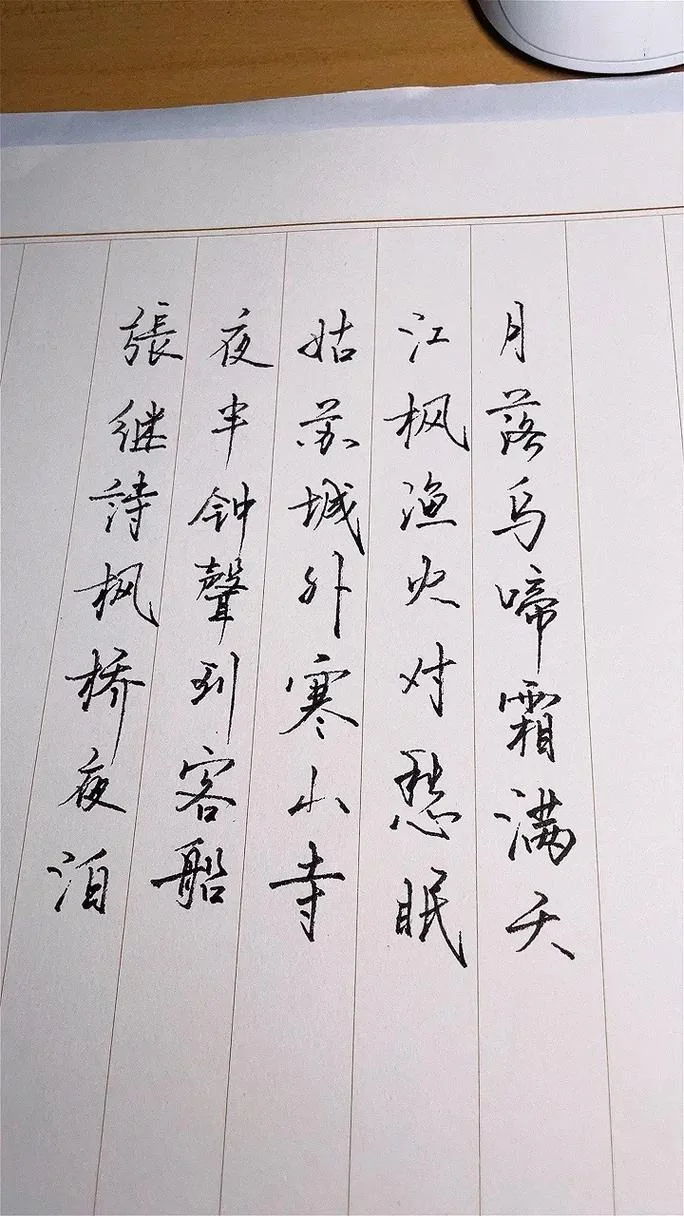 月落乌啼霜满天
江枫渔火对愁眠
姑苏城外寒山寺
夜半钟聲到客船
張继詩枫桥夜泊